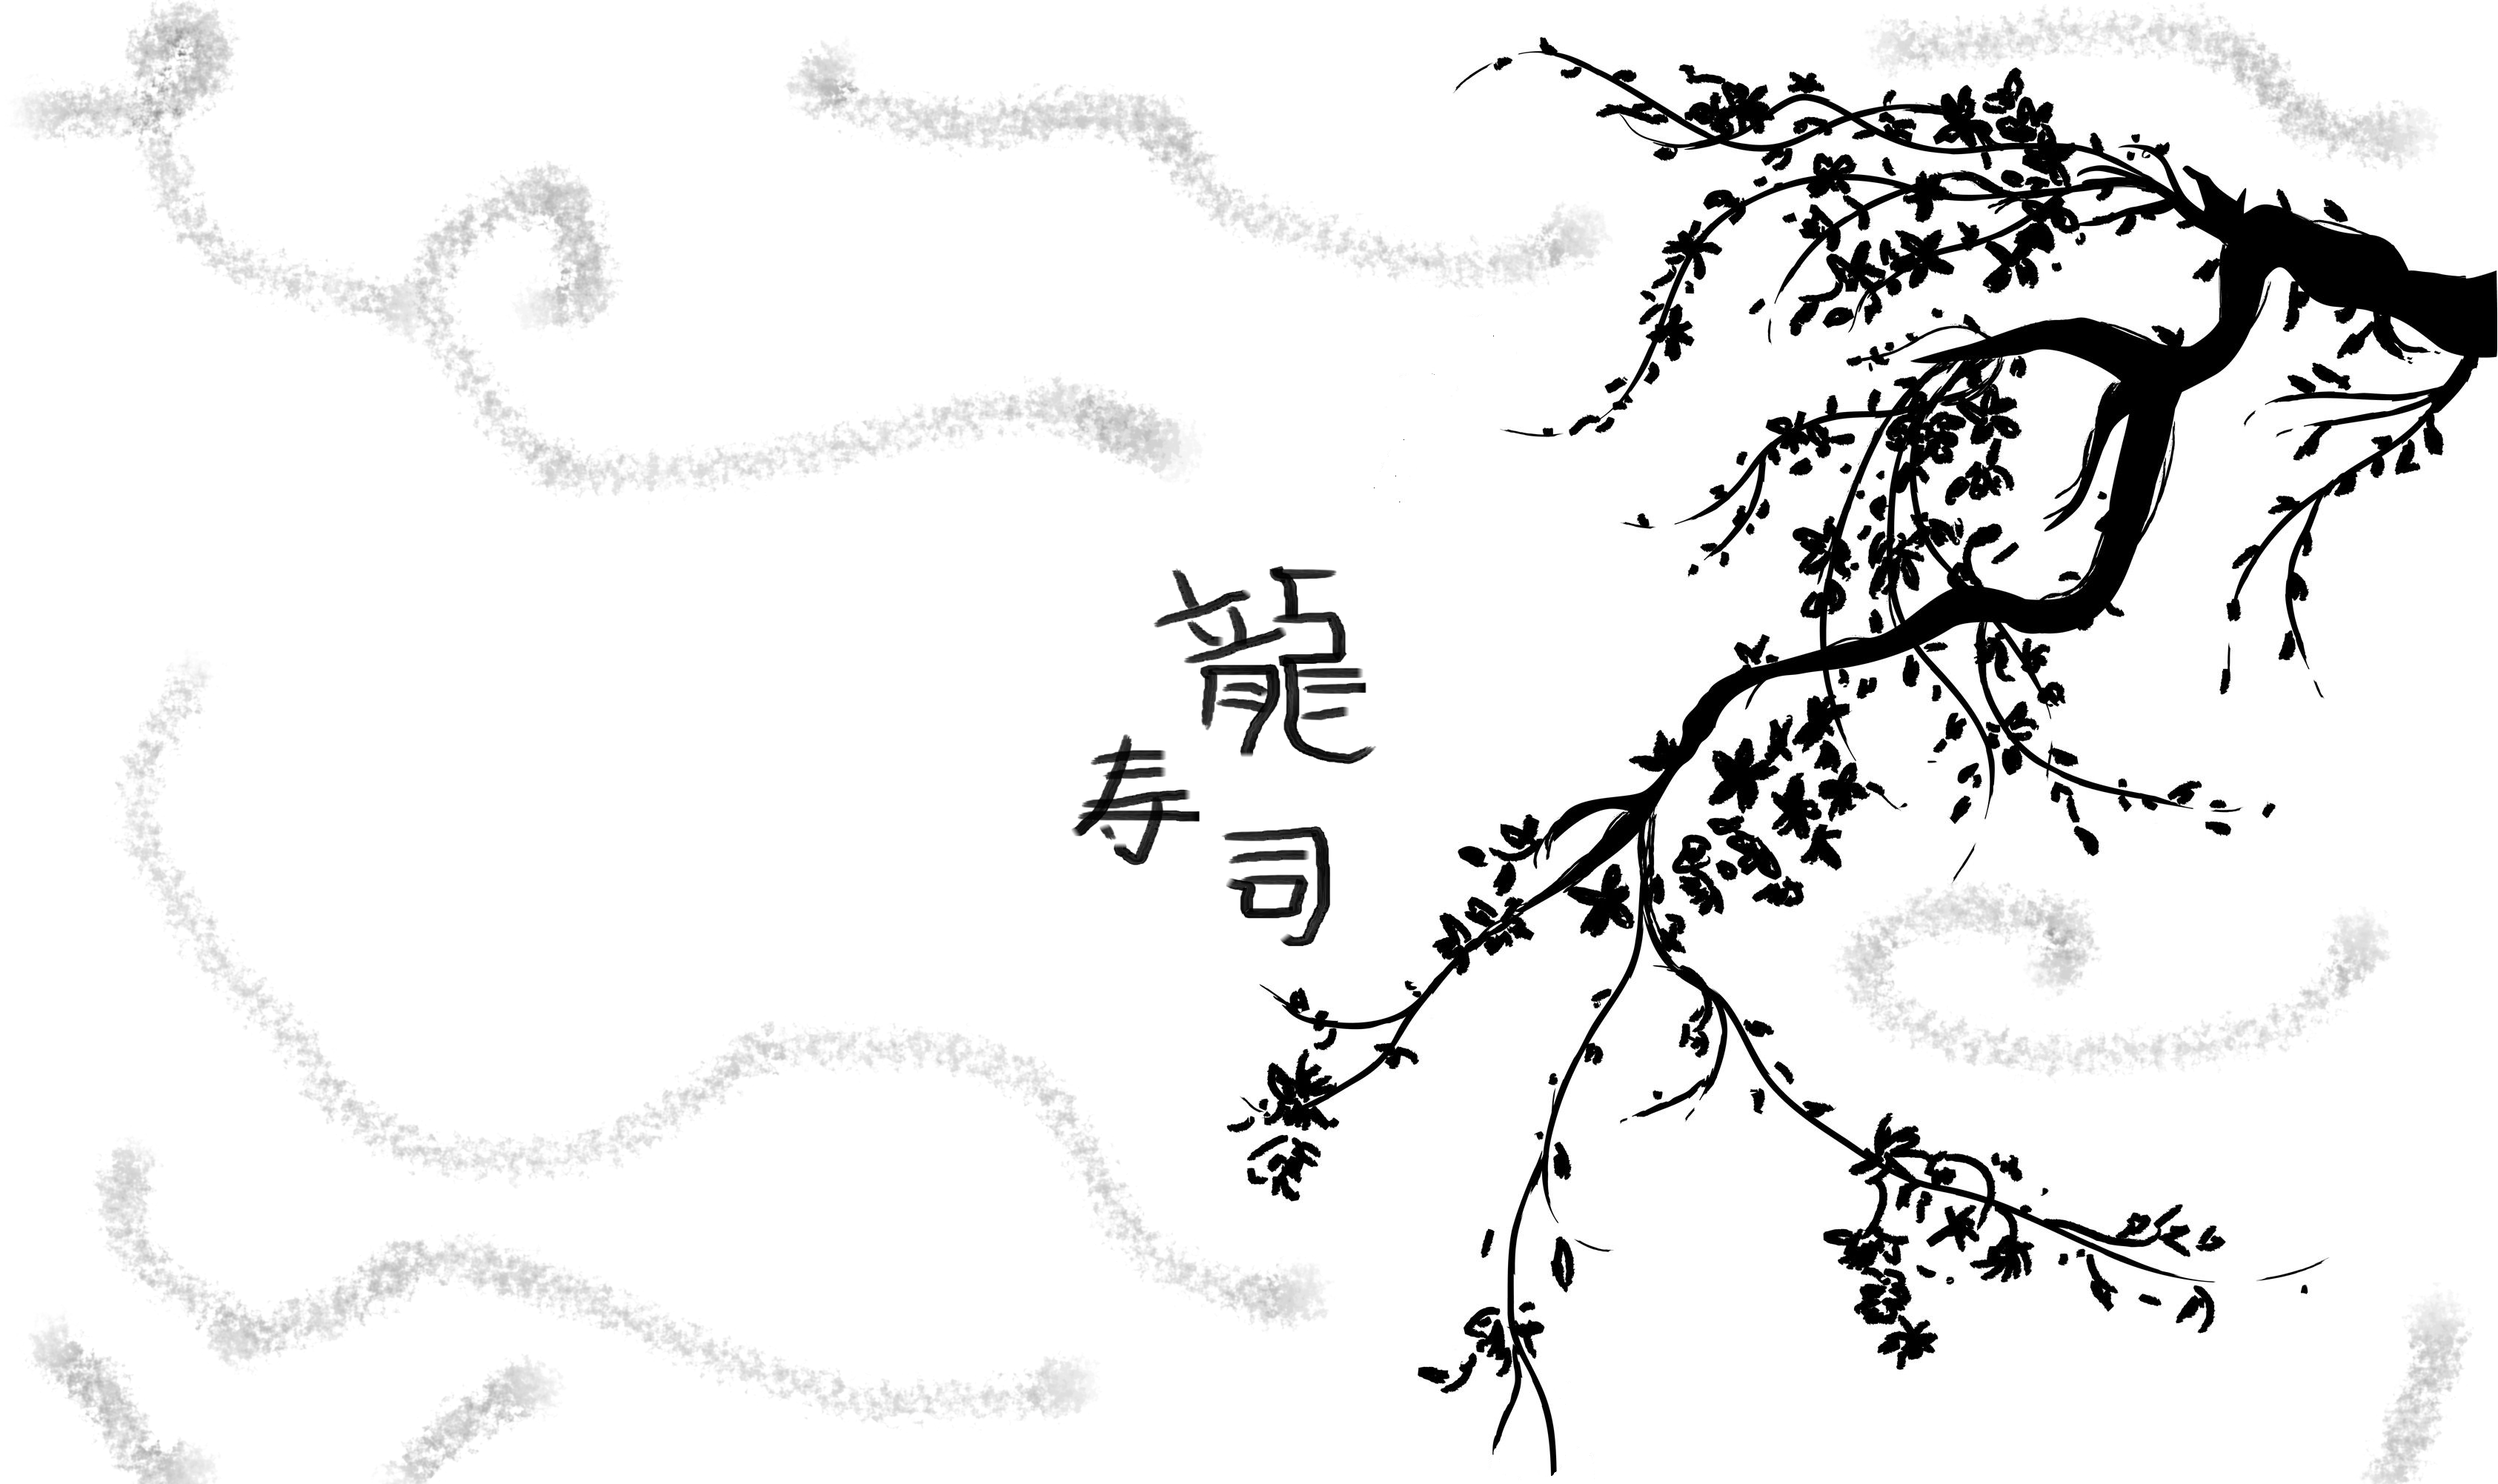 龍
寿司